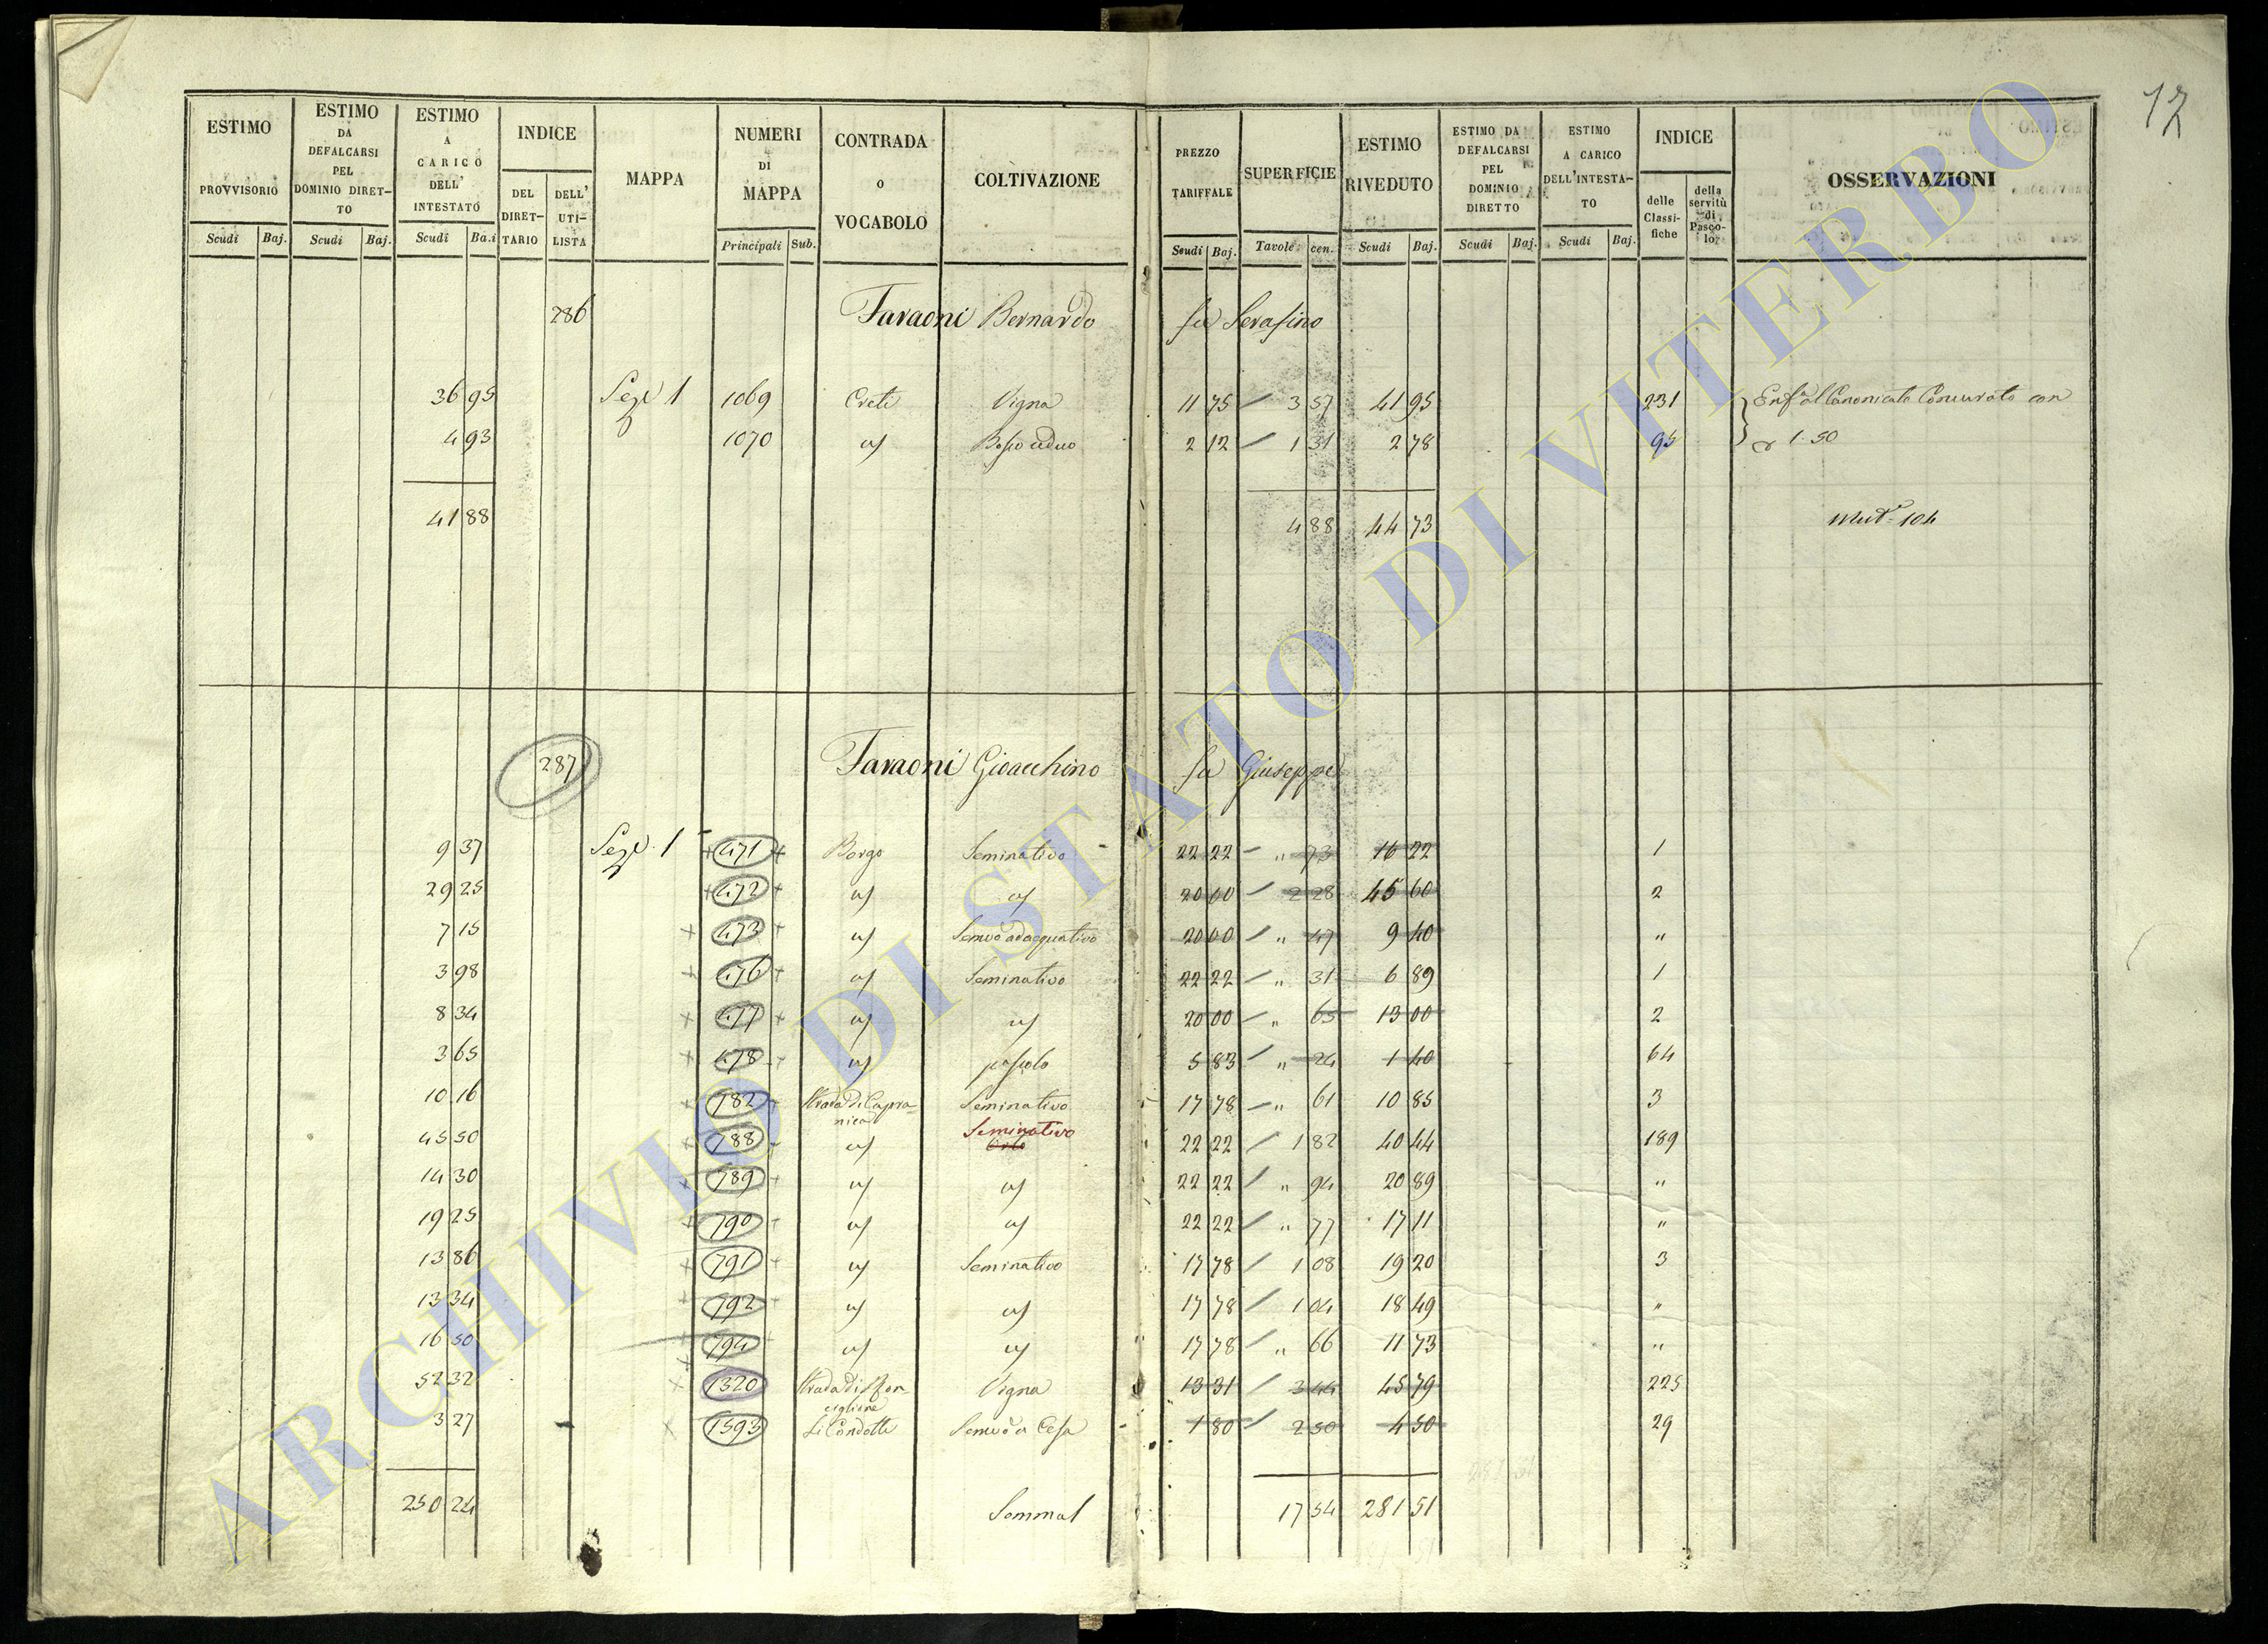 12
ESTIMO PROVVISORIO Scudi Baj.
ESTIMO DA DEFALCARSI PEL DOMINIO DIRETTO Scudi Baj.
ESTIMO A CARICO DELL' INTESTATO Scudi Ba.i
INDICE DEL DIRETTARIO DELL' UTILISTA
MAPPA
NUMERI DI MAPPA Principali Sub.
CONTRADA O VOCABOLO
COLTIVAZIONE
PREZZO TARIFFALE Scudi Baj.
SUPERFICIE Tavole cen.
ESTIMO RIVEDUTO Scudi Baj.
ESTIMO DA DEFALCARSI PEL DOMINIO DIRETTO Scudi Baj.
ESTIMO A CARICO DELL'INTESTATO Scudi Baj.
INDICE delle Classifiche della servitù di Pascolo
OSSERVAZIONI
286 Faraoni Bernardo fu Serafino
36 95 Sez. 1 1069 Creti Vigna 11 75 3 57 41 95 231 Enf. al Canonicato Concurato con
4 93 1070 Bosco ceduo 2 12 1 31 2 78 95 1.50
41 88 4 88 44 73 Mut. 104
287 Faraoni Gioacchino fu Giuseppe
9 37 Sez. 1 471 Borgo Seminativo 22 22 " 73 16 22 1
29 25 472 20 00 2 28 45 60 2
7 15 473 Semvo adacquativo 20 00 " 47 9 40 "
3 98 476 Seminativo 22 22 " 31 6 89 1
8 34 477 20 00 " 65 13 00 2
3 65 478 pascolo 5 83 " 24 1 40 64
10 16 782 Strada di Capranica Seminativo 17 78 " 61 10 85 3
45 50 788 Seminativo Orto 22 22 1 82 40 44 189
14 30 789 22 22 " 94 20 89 "
19 25 790 22 22 " 77 17 11 "
13 86 791 Seminativo 17 78 1 08 19 20 3
13 34 792 17 78 1 04 18 49 "
16 50 794 17 78 " 66 11 73 "
52 32 1320 Strada di Ronciglione Vigna 13 31 3 44 45 79 225
3 27 1593 Li Condotti Semvo a Cesa 1 80 2 50 4 50 29
250 24 Somma 17 54 281 51
ARCHIVIO DI STATO DI VITERBO